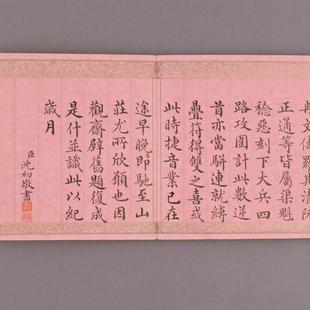 文儔羅其清阮
正通等皆屬渠魁
稔惡刻下大兵四
路攻圍計此數逆
首亦當駢連就縛
疊符得雙之喜或
此時捷音業已在
途早晚即馳至山
莊尤所欣願也因
觀齋壁舊題復成
是什並識此以紀
歲月
臣沈初敬書